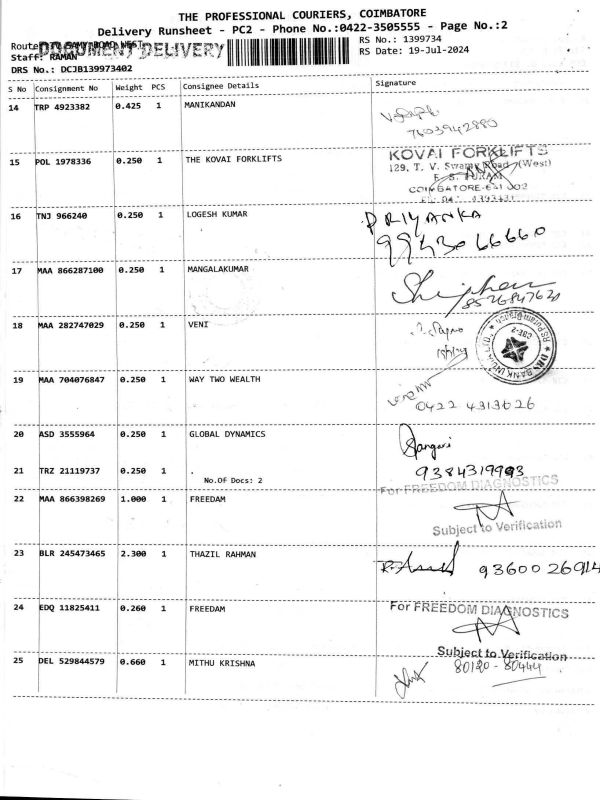 THE PROFESSIONAL COURIERS, COIMBATORE
Delivery Runsheet - PC2 - Phone No.:0422-3505555 - Page No.:2
Route
DOCUMENT DELIVERY
RS No.: 1399734
Staff: RAMAN
RS Date: 19-Jul-2024
DRS No.: DCJB139973402
S No Consignment No Weight PCS Consignee Details Signature
14 TRP 4923382 0.425 1 MANIKANDAN
7603942880
15 POL 1978336 0.250 1 THE KOVAI FORKLIFTS KOVAI FORKLIFTS
129, T. V. Swamy Road (West)
R. S. PURAM
COIMBATORE-641 002
16 TNJ 966240 0.250 1 LOGESH KUMAR PRIYANKA
9943066660
17 MAA 866287100 0.250 1 MANGALAKUMAR
8526847620
18 MAA 282747029 0.250 1 VENI
19 MAA 704076847 0.250 1 WAY TWO WEALTH
0422 4313626
20 ASD 3555964 0.250 1 GLOBAL DYNAMICS
21 TRZ 21119737 0.250 1 .
No.Of Docs: 2
9384319993
For FREEDOM DIAGNOSTICS
22 MAA 866398269 1.000 1 FREEDAM
Subject to Verification
23 BLR 245473465 2.300 1 THAZIL RAHMAN
93600 26914
24 EDQ 11825411 0.260 1 FREEDAM For FREEDOM DIAGNOSTICS
Subject to Verification
25 DEL 529844579 0.660 1 MITHU KRISHNA 80120 - 80444